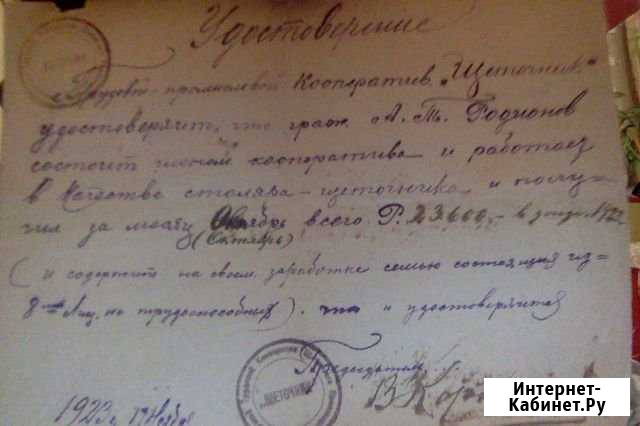 Удостоверение
Трудов. промысловой Кооператив "Щеточник"
удостоверяит, что граж. А. Т. Родионов
состоит членом кооператива и работает
в качестве столяра-щеточника и полу-
чил за месяц Октябрь всего Р. 23600,- в
(Октябрь)
(и содержит на своем заработке семью состоящия из
8ми лиц, не трудоспособных). что и удостоверяится
Председатель
"ЩЕТОЧНИК"
1923 г. Ноября
Интернет-
Кабинет.Ру